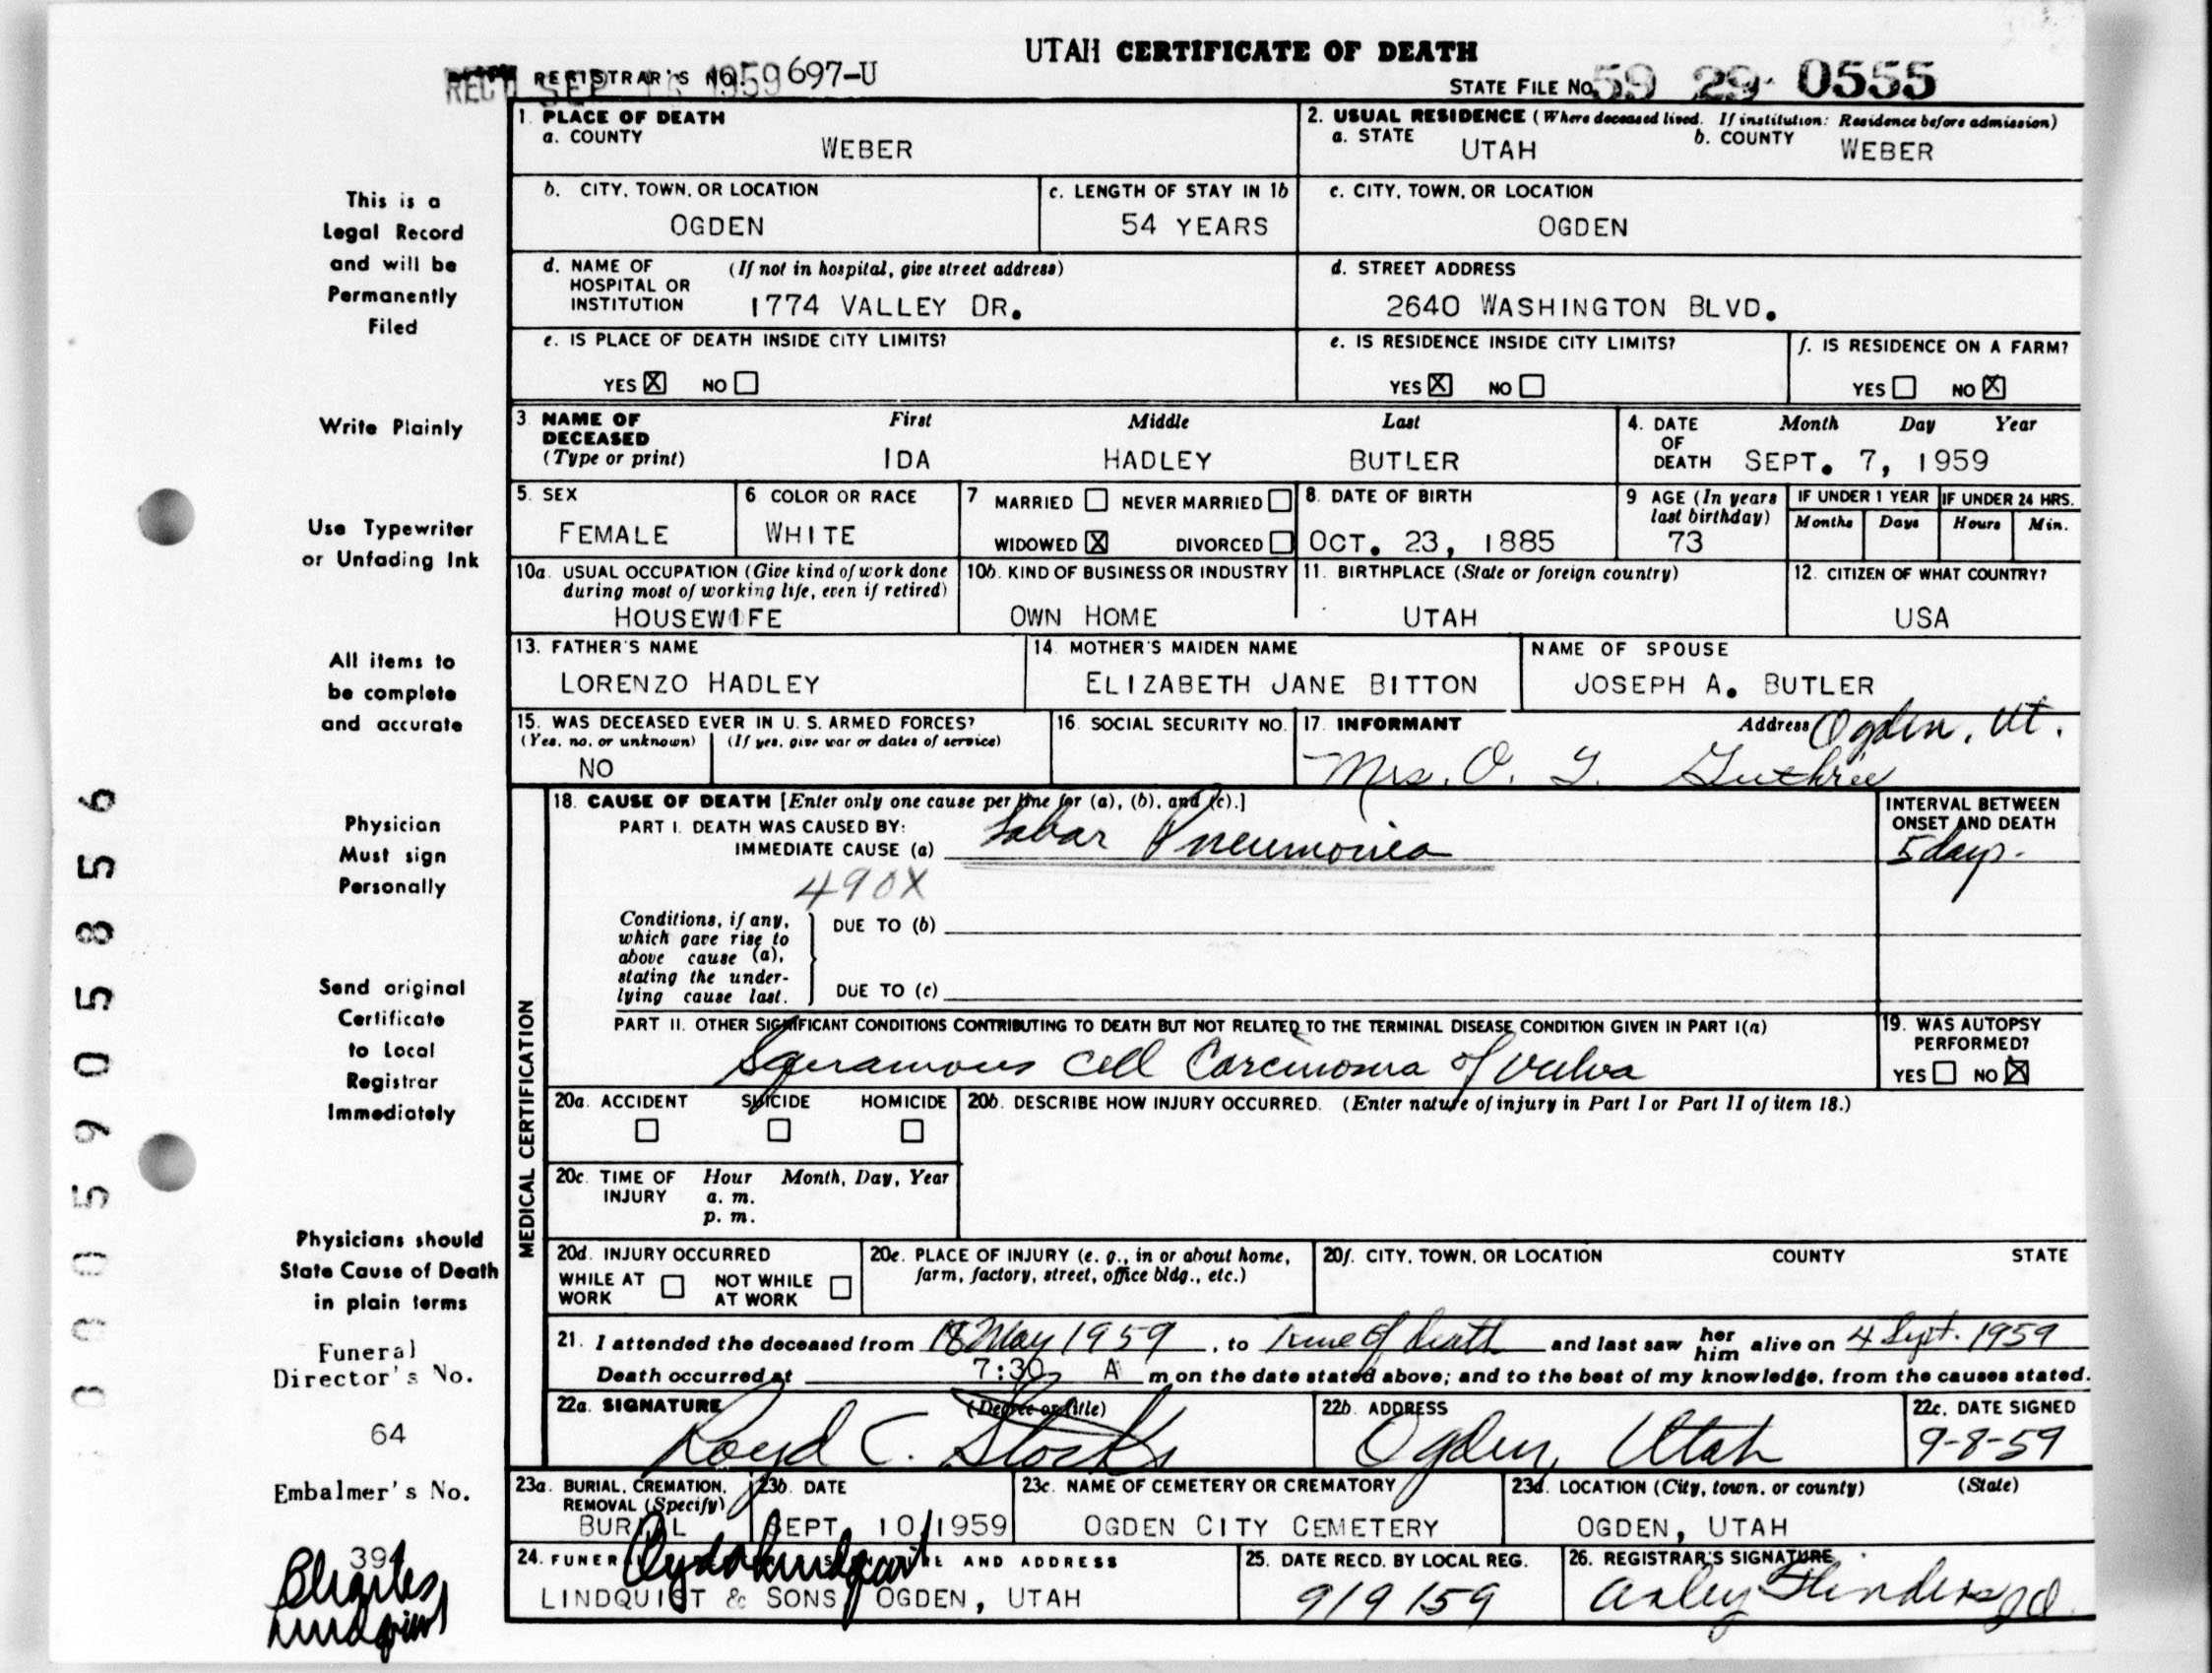 UTAH CERTIFICATE OF DEATH
REC'D SEP 16 1959
REGISTRAR'S NO. 697-U
STATE FILE NO. 59 29 0555
1. PLACE OF DEATH
a. COUNTY
WEBER
2. USUAL RESIDENCE (Where deceased lived. If institution: Residence before admission)
a. STATE
UTAH
b. COUNTY
WEBER
b. CITY, TOWN, OR LOCATION
OGDEN
c. LENGTH OF STAY IN 1b
54 YEARS
c. CITY, TOWN, OR LOCATION
OGDEN
d. NAME OF HOSPITAL OR INSTITUTION
(If not in hospital, give street address)
1774 VALLEY DR.
d. STREET ADDRESS
2640 WASHINGTON BLVD.
e. IS PLACE OF DEATH INSIDE CITY LIMITS?
YES X NO
e. IS RESIDENCE INSIDE CITY LIMITS?
YES X NO
f. IS RESIDENCE ON A FARM?
YES NO X
3 NAME OF DECEASED (Type or print)
First Middle Last
IDA HADLEY BUTLER
4. DATE OF DEATH
Month Day Year
SEPT. 7, 1959
5. SEX
FEMALE
6 COLOR OR RACE
WHITE
7 MARRIED NEVER MARRIED
WIDOWED X DIVORCED
8. DATE OF BIRTH
OCT. 23, 1885
9 AGE (In years last birthday)
73
IF UNDER 1 YEAR
Months Days
IF UNDER 24 HRS.
Hours Min.
10a. USUAL OCCUPATION (Give kind of work done during most of working life, even if retired)
HOUSEWIFE
10b. KIND OF BUSINESS OR INDUSTRY
OWN HOME
11. BIRTHPLACE (State or foreign country)
UTAH
12. CITIZEN OF WHAT COUNTRY?
USA
13. FATHER'S NAME
LORENZO HADLEY
14. MOTHER'S MAIDEN NAME
ELIZABETH JANE BITTON
NAME OF SPOUSE
JOSEPH A. BUTLER
15. WAS DECEASED EVER IN U. S. ARMED FORCES?
(Yes, no, or unknown) (If yes, give war or dates of service)
NO
16. SOCIAL SECURITY NO.
17. INFORMANT
Address Ogden, Ut.
Mrs. O. Guthrie
MEDICAL CERTIFICATION
18. CAUSE OF DEATH [Enter only one cause per line for (a), (b), and (c).]
PART I. DEATH WAS CAUSED BY:
IMMEDIATE CAUSE (a) Lobar Pneumonia
490X
INTERVAL BETWEEN ONSET AND DEATH
5 days.
Conditions, if any, which gave rise to above cause (a), stating the underlying cause last.
DUE TO (b)
DUE TO (c)
PART II. OTHER SIGNIFICANT CONDITIONS CONTRIBUTING TO DEATH BUT NOT RELATED TO THE TERMINAL DISEASE CONDITION GIVEN IN PART I(a)
Squamous cell Carcinoma of Vulva
19. WAS AUTOPSY PERFORMED?
YES NO X
20a. ACCIDENT SUICIDE HOMICIDE
20b. DESCRIBE HOW INJURY OCCURRED. (Enter nature of injury in Part I or Part II of item 18.)
20c. TIME OF INJURY
Hour Month, Day, Year
a. m.
p. m.
20d. INJURY OCCURRED
WHILE AT WORK NOT WHILE AT WORK
20e. PLACE OF INJURY (e. g., in or about home, farm, factory, street, office bldg., etc.)
20f. CITY, TOWN, OR LOCATION COUNTY STATE
21. I attended the deceased from 18 May 1959, to time of death and last saw her him alive on 4 Sept. 1959
Death occurred at 7:30 A m on the date stated above; and to the best of my knowledge, from the causes stated.
22a. SIGNATURE (Degree or title)
Loyd C. Stocks
22b. ADDRESS
Ogden, Utah
22c. DATE SIGNED
9-8-59
23a. BURIAL, CREMATION, REMOVAL (Specify)
BURIAL
23b. DATE
SEPT. 10, 1959
23c. NAME OF CEMETERY OR CREMATORY
OGDEN CITY CEMETERY
23d. LOCATION (City, town, or county) (State)
OGDEN, UTAH
24. FUNERAL AND ADDRESS
LINDQUIST & SONS, OGDEN, UTAH
25. DATE RECD. BY LOCAL REG.
9/9/59
26. REGISTRAR'S SIGNATURE
This is a
Legal Record
and will be
Permanently
Filed
Write Plainly
Use Typewriter
or Unfading Ink
All items to
be complete
and accurate
Physician
Must sign
Personally
Send original
Certificate
to Local
Registrar
Immediately
Physicians should
State Cause of Death
in plain terms
Funeral
Director's No.
64
Embalmer's No.
394
Charles
Lindquist
0005905856